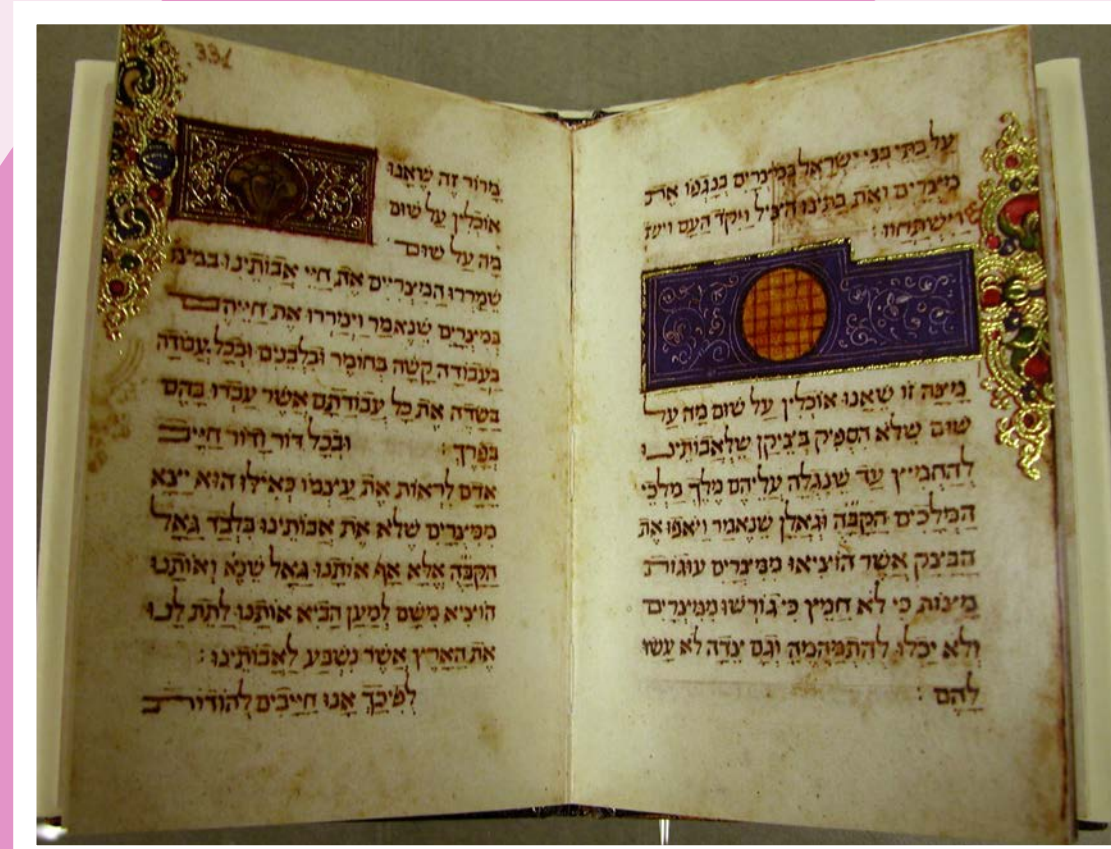 על בתי בני ישראל במיצרים בנגפו את
מיצרים ואת בתינו היציל ויקד העם
וישתחוו :
מיצה זו שאנו אוכלין על שום מה על
שום שלא הספיק ביציקן שלאבותינו
להחמיץ עד שנגלה עליהם מלך מלכי
המלכים הקבה וגאלן שנאמר ויאפו את
הבצק אשר הוציאו ממיצרים עוגות
מצות כי לא חמיץ כי גורשו ממיצרים
ולא יכלו להתמהמה וגם צדה לא עשו
להם :
331
מרור זה שאנו
אוכלין על שום
מה על שום
שמררו המיצריים את חיי אבותינו
במיצרים שנאמר וימררו את חייהם
בעבודה קשה בחומר ובלבנים ובכל עבודה
בשדה את כל עבודתם אשר עבדו בהם
בפרך : ובכל דור ודור חייב
אדם לראות את עצמו כאילו הוא ייצא
ממיצרים שלא את אבותינו בלבד גאל
הקבה אלא אף אותנו גאל שנא ואותנו
הוציא משם למען הביא אותנו לתת לנו
את הארץ אשר נשבע לאבותינו :
לפיכך אנו חייבים להודות